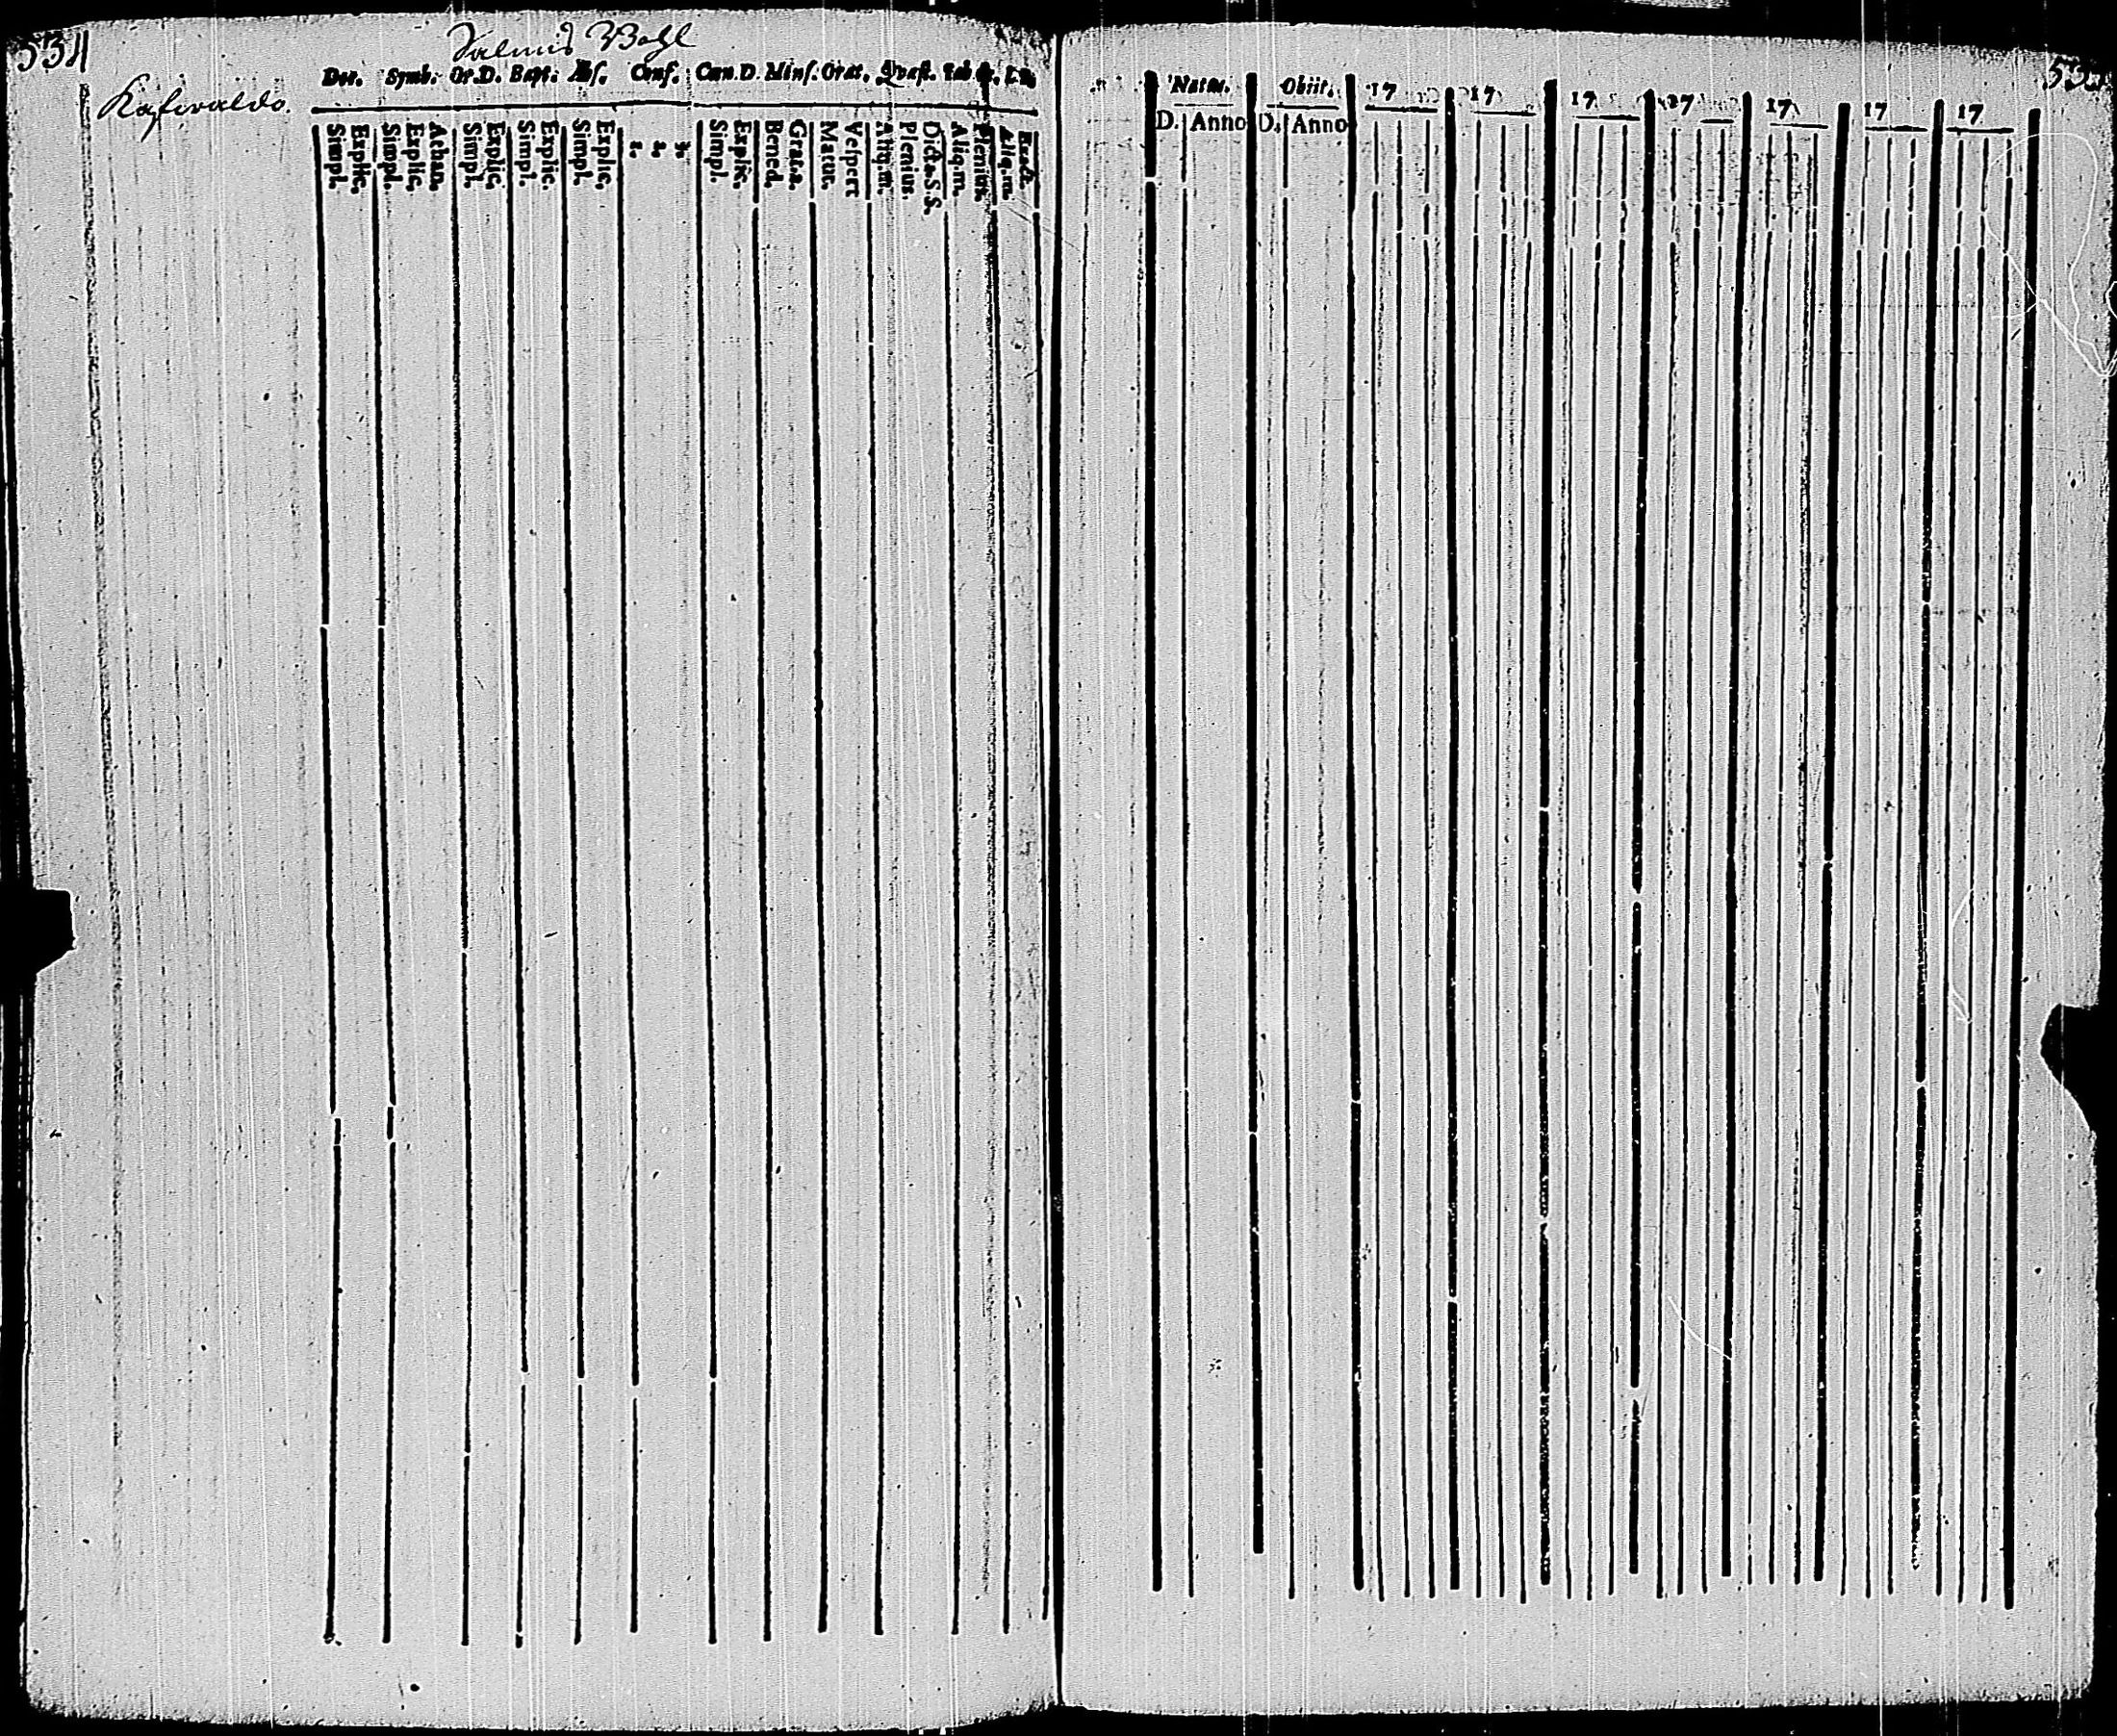 534
Salmis Wahl
Dec. Symb. Or.D. Bapt. Abs. Conf. Cœn.D. Mens. Orat. Quæst. Tab.
Kaseraldo
Simpl. Explic. Simpl. Explic. Athan. Simpl. Explic. Simpl. Explic. Simpl. Explic. 1. 2. 3. Simpl. Explic. Bened. Grat.a. Matut. Vespert Aliq.m. Plenius. Dicta S.S. Aliq.m. Plenius. Aliq.m.
Natus. Obiit. 17 17 17 17 17 17 17
D. Anno D. Anno